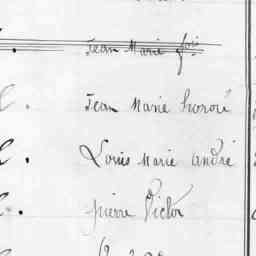 Jean Marie fois
Jean Marie honoré
Louis Marie andré
pierre Victor